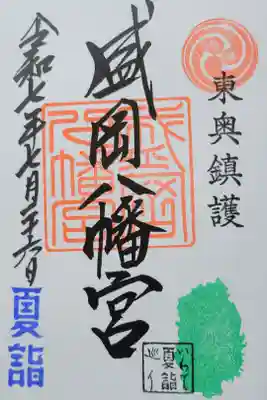 東奥鎮護
盛岡八幡宮
令和七年七月二十六日
夏詣
いわて
夏詣
巡り